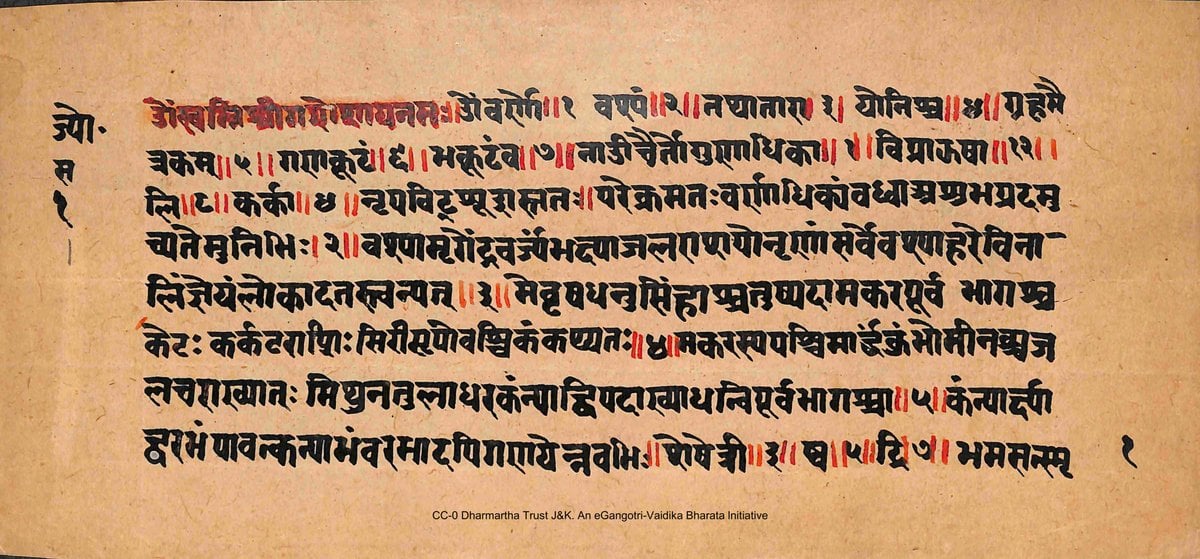 ज्यो॰
स
१
ओं स्वस्ति श्रीगणेशायनमः॥ ओंवर्णो॥१ वश्यं॥२॥ नथातारा ३। योनिश्च॥४॥ गृहमै
त्रकम्॥५॥ गणकूटं॥६॥ भकूटंच॥७॥ नाडीचैतेगुणाधिका॥१॥ विप्राऊषा॥१२॥
लि॥८॥ कर्का॥४॥ नृपविट्प्पूद्रास्ततः॥ परेक्रमतःवर्णाधिक्यंवध्वाअश्रुभप्रदमु
च्यतेमुनिभिः।२॥ वश्यामृगेंद्रवर्ज्यंभक्ष्याजलराशयोनृणांसर्वेवश्याहरेविना
लिंज्ञेयंलोकादतस्त्वन्यत्॥३॥ मेवृषधनुसिंहाश्चतुष्पदामकरपूर्व भागश्च
केटः कर्कटराशिः सिरीसृपोवश्चिकंकथ्यतः॥४॥ मकरस्यपश्चिमार्द्धंकुंभोमीनश्चज
लचराख्यातः मिथुनतुलाधरकंन्याद्विपदाख्याधन्विपूर्वभागश्च॥५॥ कंन्यार्क्षा
द्वरभंयावत्कन्याभंवरभादपिगणयेन्नवभिः॥ शेषेत्री॥३॥ ष्व॥५॥ द्रि॥७॥ भमसत्स्मृ
१
CC-0 Dharmartha Trust J&K. An eGangotri-Vaidika Bharata Initiative